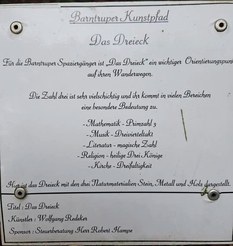 Barntruper Kunstpfad
Das Dreieck
Für die Barntruper Spaziergänger ist „Das Dreieck" ein wichtiger Orientierungspunkt
auf ihren Wanderungen.
Die Zahl drei ist sehr vielschichtig und ihr kommt in vielen Bereichen
eine besondere Bedeutung zu.
-Mathematik - Primzahl 3
-Musik - Dreivierteltakt
-Literatur - magische Zahl
-Religion - heilige Drei Könige
-Kirche - Dreifaltigkeit
ist das Dreieck mit den drei Naturmaterialien Stein, Metall und Holz dargestellt.
Titel : Das Dreieck
Künstler : Wolfgang
Sponsor : Steuerberatung Herr Robert Hampe